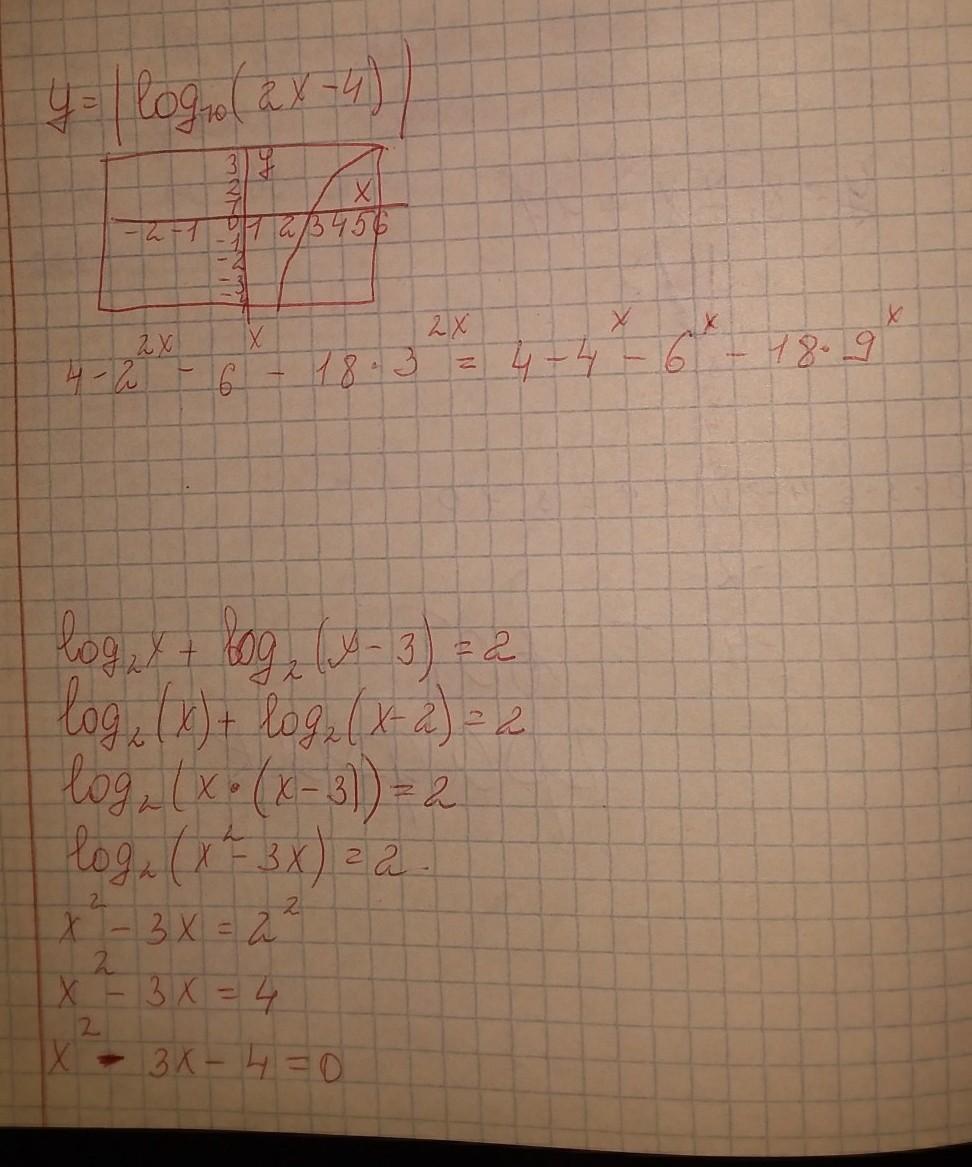 y = |log₁₀(2x-4)|
3 y
2
1 x
-2 -1 0 1 2 3 4 5 6
-1
-2
-3
4-2^2x - 6^x - 18·3^2x = 4-4^x - 6^x - 18·9^x
log₂x + log₂(x-3) = 2
log₂(x) + log₂(x-2) = 2
log₂(x·(x-3)) = 2
log₂(x²-3x) = 2.
x² - 3x = 2²
x² - 3x = 4
x² - 3x - 4 = 0